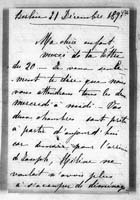 Berlin 21 Décembre 189
Ma chère enfant,
merci de ta lettre
du 20 – Je veux seule-
ment te dire que nous
vous attendons tous les
mercredi à midi. Vos
deux chambres sont prêtes
à partir d'aujourd'hui
pour l'arri-
de Joseph, Hélène ne
voulait n'avoir plus
à s'occuper de